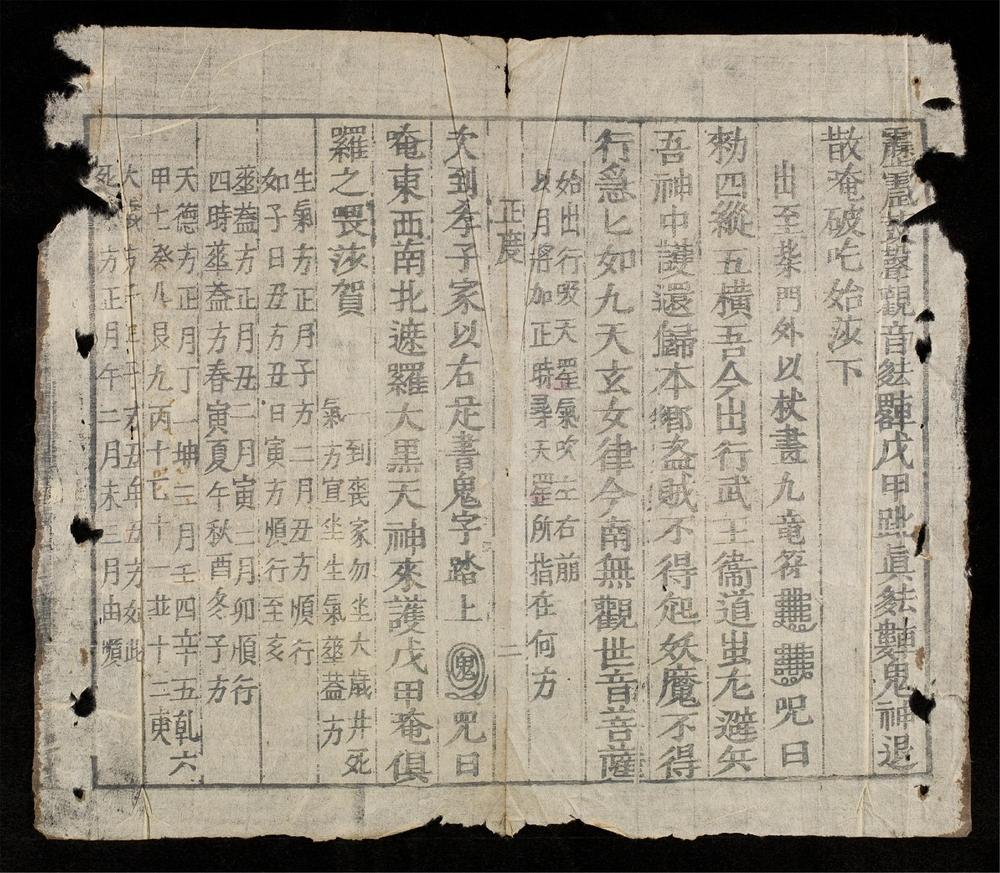 散唵破吃始莎下
出至柴門外以杖畫九竜符 呪曰
勑四縱五横吾今出行武王衛道蚩尤避兵
吾神中護還歸本郷盗賊不得起妖魔不得
行急匕如九天玄女律令南無觀世音菩薩
始出行吸天罡氣吹左右前
以月將加正時尋天罡所指在何方
正度 二
次到孝子家以右足書鬼字踏上 鬼 呪曰
唵東西南北遮羅大黒天神來護戊甲唵俱
羅之喂莎賀
到喪家勿坐大歳并死
氣方宜坐生氣華盖方
生氣方正月子方二月丑方順行
如子日丑方丑日寅方順行至亥
華盖方正月丑二月寅三月卯順行
四時華盖方春寅夏午秋酉冬子方
天德方正月丁二坤三月壬四辛五乹六
甲七癸八艮九丙十乙十一巽十二庚
方子年子方丑年丑方如此
死 方正月午二月未三月申順